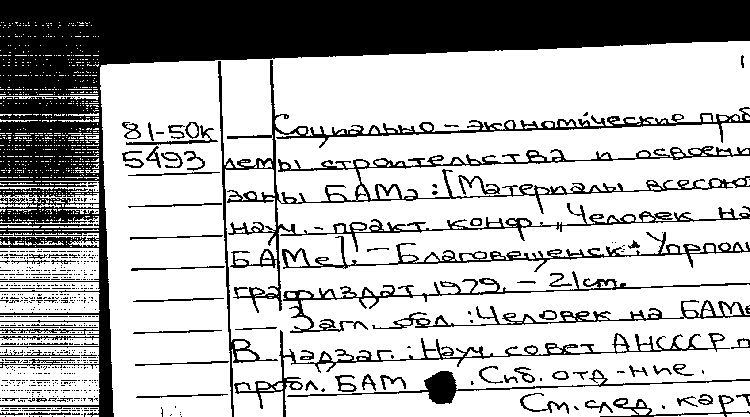 81-50к Социально-экономические проб
5493 лемы строительства и освоени
зоны БАМа: [Материалы всесоюз
науч.-практ. конф. „Человек на
БАМе]. – Благовещенск: Упрполи
графиздат, 1979. – 21 см.
Загл. обл.: Человек на БАМе
В надзаг.: Науч. совет АНСССР п
пробл. БАМ . Сиб. отд-ние.
См. след. карт